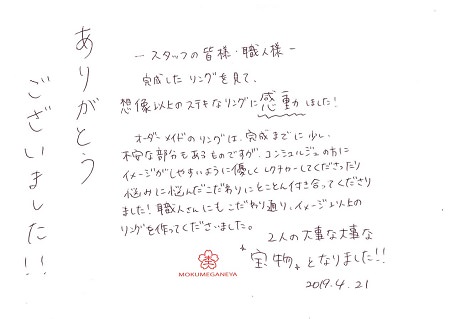 ありがとう
ございました!!
－スタッフの皆様・職人様－
完成したリングを見て、
想像以上のステキなリングに感動しました!
オーダーメイドのリングは、完成までに少し、
不安な部分もあるものですが、コンシェルジュの方に
イメージがしやすいように優しくレクチャーしてくださったり
悩みに悩んだこだわりにとことん付き合ってくださり
ました!職人さんにもこだわり通り、イメージ以上の
リングを作ってくださいました。
2人の大事な大事な
"宝物"となりました!!
2019.4.21
MOKUMEGANEYA